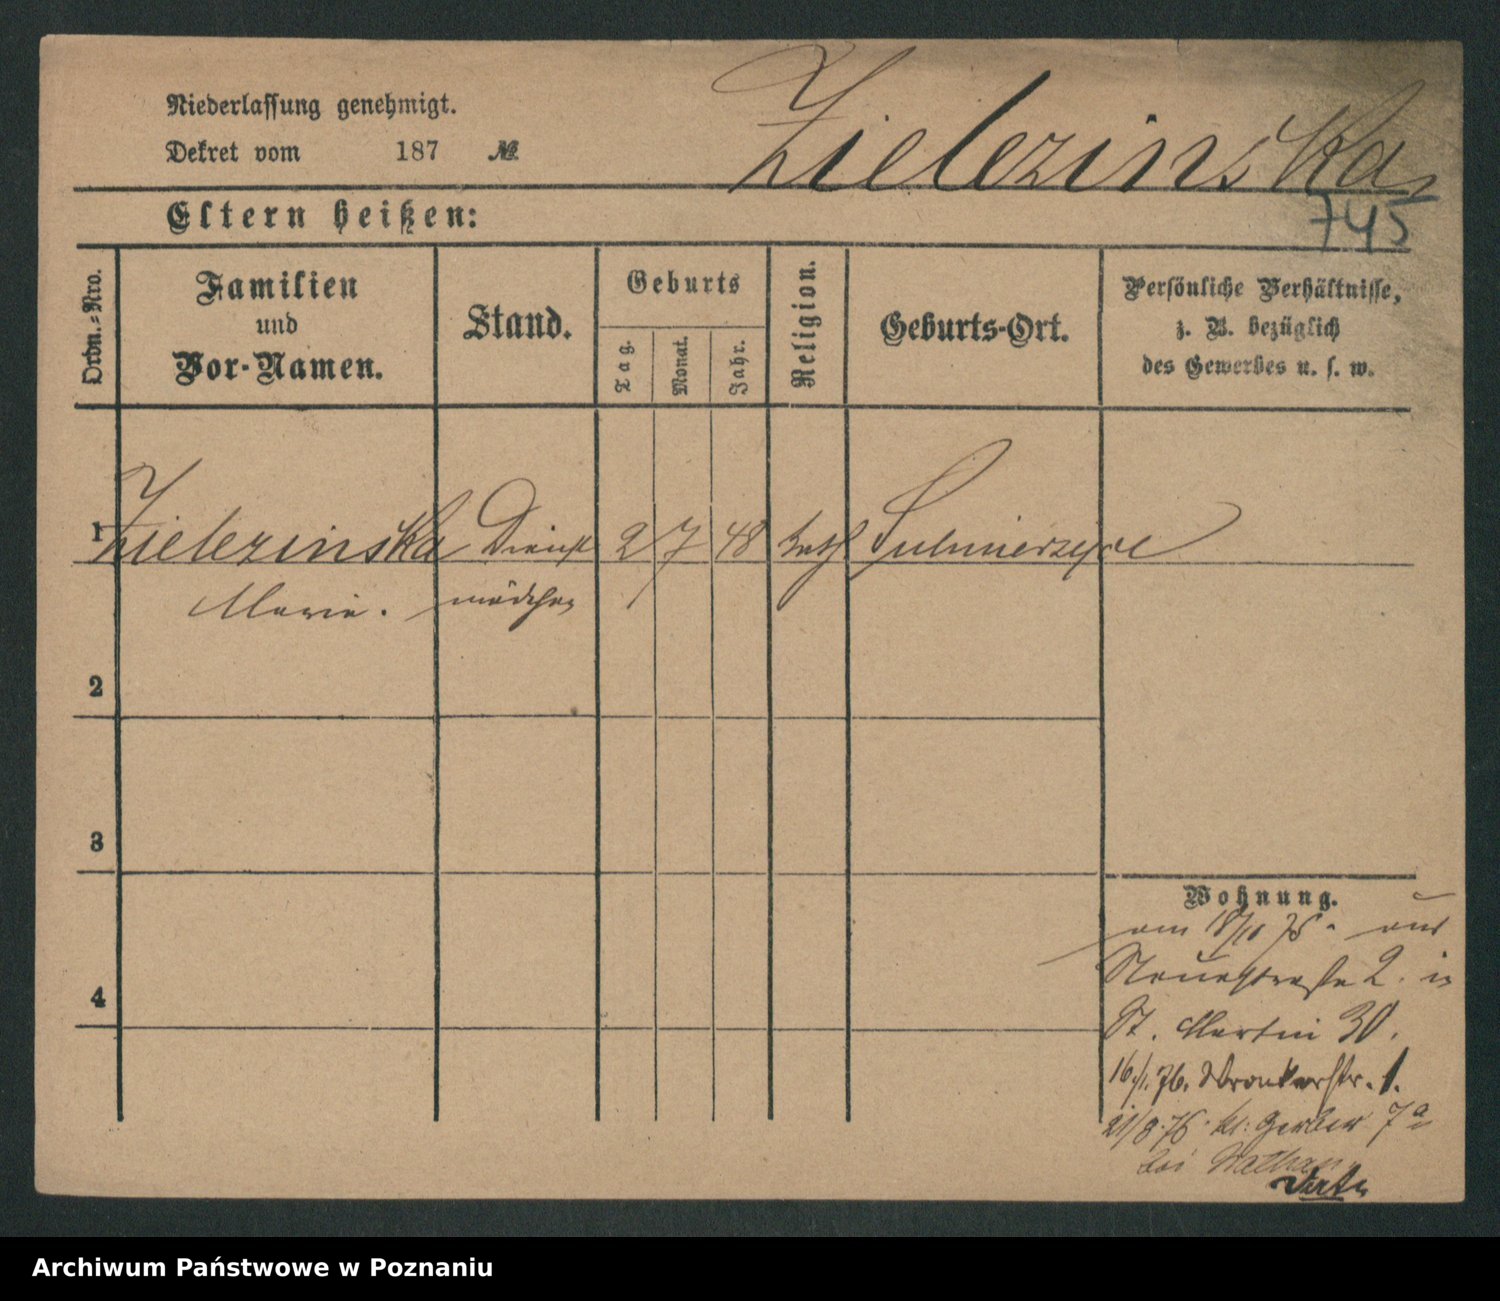 Niederlassung genehmigt.
Dekret vom 187 №
Zielezinska
745
Eltern heißen:
Ordn.-Nro.
Familien
und
Vor-Namen.
Stand.
Geburts
Tag.
Monat.
Jahr.
Religion.
Geburts-Ort.
Persönliche Verhältnisse,
z. B. bezüglich
des Gewerbes u. s. w.
1 Zielezinska Dienst 2 7 48 kath Sulmierzyce
Marie. mädchen
2
3
4
Wohnung.
am 18/10 75. aus
Neuestraße 2. in
St. Martin 30.
16./1. 76. Wronkerstr. 1.
21/8. 76. kl. Gerber 7a
bei